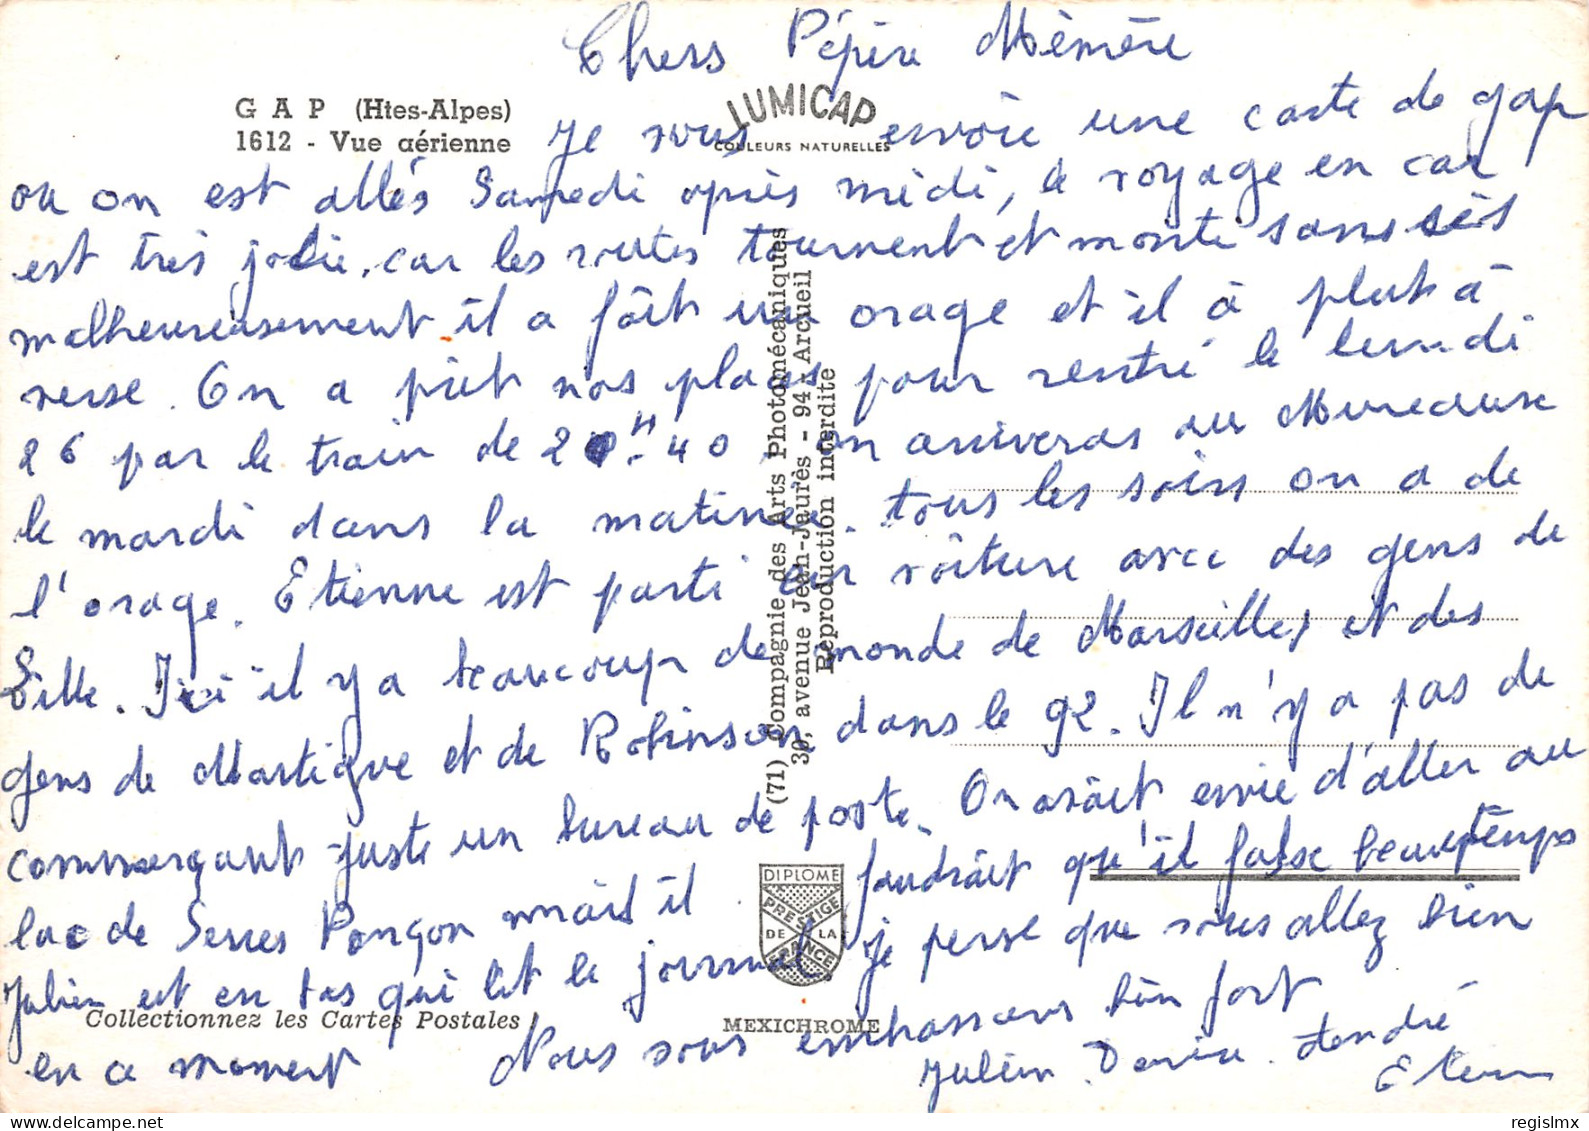 Chers Pépère Mémère
G A P (Htes-Alpes)
1612 - Vue aérienne
LUMICAP
COULEURS NATURELLES
Je vous envoie une carte de gap
ou on est allés Samedi après midi, le voyage en car
est très jolie, car les routes tournent et monte sans
malheureusement il a fait un orage et il à plut à
verse. On a priet nos places pour rentré le lundi
26 par le train de 20H 40 on arriveras au Mureaux
le mardi dans la matinée. tous les soirs on a de
l'orage. Etienne est parti en voiture avec des gens de
Lille. Ici il y a beaucoup de monde de Marseille, et des
gens de Martigue et de Robinson dans le 92. Il n'y a pas de
commerçant juste un bureau de poste. On avait envie d'aller au
lac de Serres Ponçon mais il faudrait qu'il fasse beau temps
Julien est en bas qui lit le journal, je pense que vous allez bien
en ce moment Nous vous embrassons bien fort
Julien Denise André
Etienne
(71) Compagnie des Arts Photomécaniques
39, avenue Jean-Jaurès - 94 - Arcueil
Reproduction interdite
DIPLOME
PRESTIGE
DE LA
FRANCE
Collectionnez les Cartes Postales
MEXICHROME
regislmx